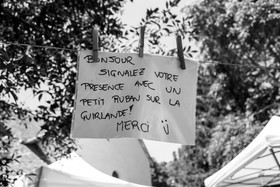 BONJOUR
SIGNALEZ VOTRE
PRESENCE AVEC UN
PETIT RUBAN SUR LA
GUIRLANDE!
MERCI Ü